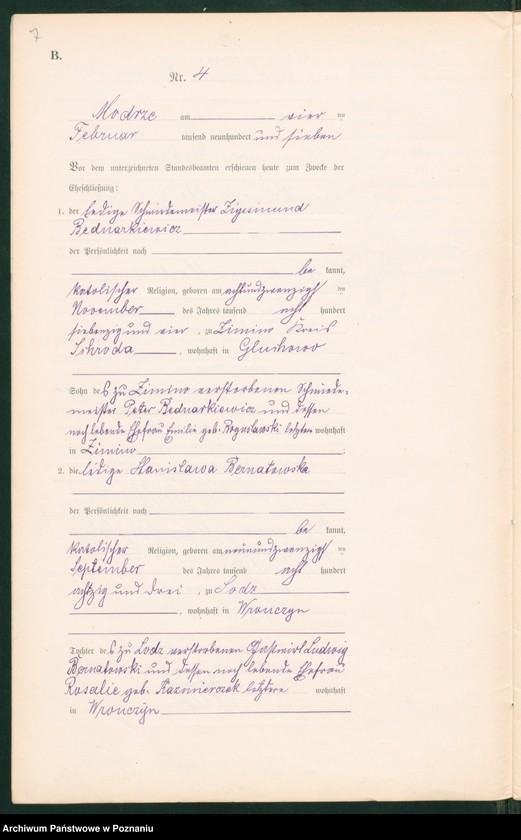 7
B.
Nr. 4
Modrze am vier ten
Februar tausend neunhundert und sieben
Vor dem unterzeichneten Standesbeamten erschienen heute zum Zwecke der
Eheschließung:
1. der ledige Schmiedemeister Zigesmund
Bednarkiewicz
der Persönlichkeit nach
be kannt,
katolischer Religion, geboren am achtundzwanzigsten
November des Jahres tausend acht hundert
siebenzig und vier, zu Zimino Kreis
Schroda, wohnhaft in Gluchowo
Sohn des zu Zimino verstorbenen Schmiede-
meister Peter Bednarkiewicz und dessen
noch lebende Ehefrau Emilie geb. Boguslawski letztere wohnhaft
in Zimino;
2. die ledige Stanislawa Bernatowska
der Persönlichkeit nach
be kannt,
katolischer Religion, geboren am neunundzwanzigsten
September des Jahres tausend acht hundert
achtzig und drei, zu Lodz
, wohnhaft in Wronczyn
Tochter des zu Lodz verstorbenen Gastwirt Ludwig
Bernatowski und dessen noch lebende Ehefrau
Rosalie geb. Kazmierczak letztere wohnhaft
in Wronczyn
Archiwum Państwowe w Poznaniu